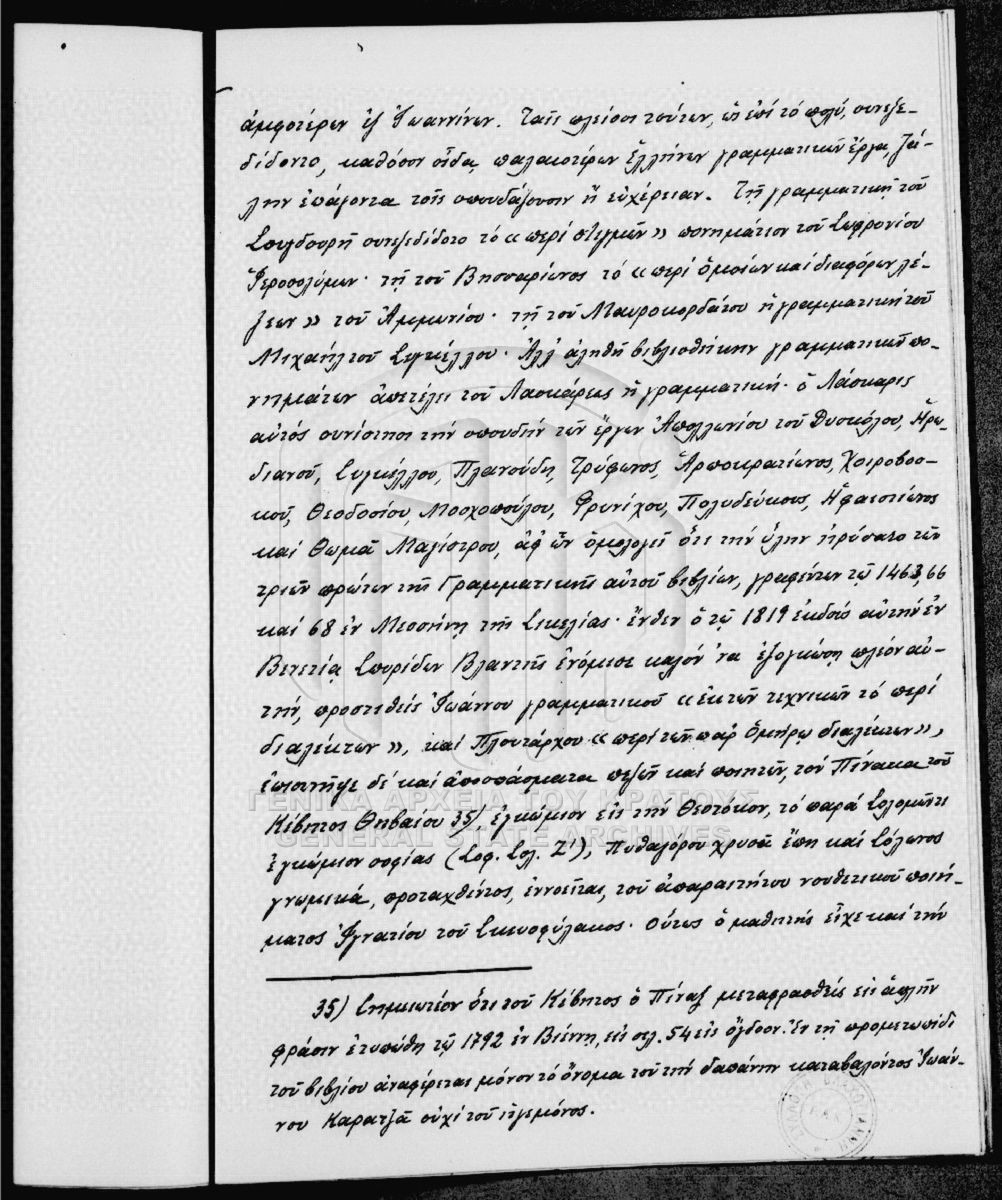 ἀμφοτέρων ἐξ Ἰωαννίνων. Ταῖς πλείσοι τούτων, ὡς ἐπί τό πολύ, συνεξε-
δίδοντο, καθόσον οἶδα, παλαιοτέρων ἑλλήνων γραμματικῶν ἔργα, ζά-
λην ἐπάγοντα τοῖς σπουδάζουσιν ἤ εὐχέρειαν. Τῇ γραμματικῇ τοῦ
Σουγδουρῆ συνεξεδίδοτο τό «περί στιγμῶν» πονημάτιον τοῦ Σωφρονίου
Ἱεροσολύμων· τῇ τοῦ Βησσαρίωνος τό «περί ὁμοίων καί διαφόρων λέ-
ξεων» τοῦ Ἀμμωνίου· τῇ τοῦ Μαυροκορδάτου ἡ γραμματική τοῦ
Μιχαήλ τοῦ Συγκέλλου. Ἀλλ' ἀληθῆ βιβλιοθήκην γραμματικῶν πο-
νημάτων ἀπετέλει τοῦ Λασκάρεως ἡ γραμματική· ὁ Λάσκαρις
αὐτός συνίστησι τήν σπουδήν τῶν ἔργων Ἀπολλωνίου τοῦ Δυσκόλου, Ἡρω-
διανοῦ, Συγκέλλου, Πλανούδη, Τρύφωνος, Ἁρποκρατίωνος, Χοιροβοσ-
κοῦ, Θεοδοσίου, Μοσχοπούλου, Φρυνίχου, Πολυδεύκους, Ἡφαιστίωνος
καί Θωμᾶ Μαγίστρου, ἀφ' ὧν ὁμολογεῖ ὅτι τήν ὕλην ἠρύσατο τῶν
τριῶν πρώτων τῆς Γραμματικῆς αὐτοῦ βιβλίων, γραφέντων τῷ 1463, 66
καί 68 ἐν Μεσσήνῃ τῆς Σικελίας· ἔνθεν ὁ τῷ 1819 ἐκδούς αὐτήν ἐν
Βενετίᾳ Σπυρίδων Βλαντῆς ἐνόμισε καλόν νά ἐξογκώσῃ πλέον αὐ-
τήν, προστεθείς Ἰωάννου γραμματικοῦ «ἐκ τῶν τεχνικῶν τό περί
διαλέκτων», καί Πλουτάρχου «περί τῶν παρ' Ὁμήρῳ διαλέκτων»,
ἐποιήσε δέ καί ἀποσπάσματα πεζῶν καί ποιητῶν, τόν Πίνακα τοῦ
Κέβητος Θηβαίου 35), ἐγκώμιον εἰς τήν Θεοτόκον, τό παρά Σολομῶντι
ἐγκώμιον σοφίας (Σοφ. Σολ. Ζ'), Πυθαγόρου χρυσᾶ ἔπη καί Σόλωνος
γνωμικά, προταχθέντος, ἐννοεῖται, τοῦ ἀπαραιτήτου νουθετικοῦ ποιή-
ματος Ἰγνατίου τοῦ Σκευοφύλακος. Οὕτως ὁ μαθητής εἶχε καί τήν
35) Σημειωτέον ὅτι τοῦ Κέβητος ὁ Πίναξ μεταφρασθείς εἰς ἁπλῆν
φράσιν ἐτυπώθη τῷ 1792 ἐν Βιέννῃ, εἰς σελ. 54 εἰς ὄγδοον. Ἐν τῇ προμετωπίδι
τοῦ βιβλίου ἀναφέρεται μόνον τό ὄνομα τοῦ τήν δαπάνην καταβαλόντος Ἰωάν-
νου Καρατζᾶ οὐχί τοῦ ἡγεμόνος.
ΓΕΝΙΚΑ ΑΡΧΕΙΑ ΤΟΥ ΚΡΑΤΟΥΣ
GENERAL STATE ARCHIVES